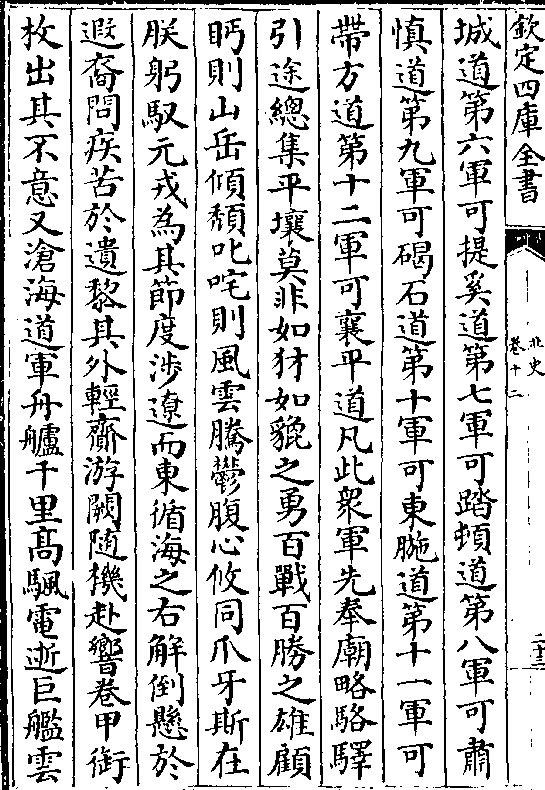 欽定四庫全書
北史
卷十二
二十三
城道第六軍可提奚道第七軍可踏頓道第八軍可肅
慎道第九軍可碣石道第十軍可東暆道第十一軍可
帶方道第十二軍可襄平道凡此衆軍先奉廟略駱驛
引途總集平壤莫非如犲如貔之勇百戰百勝之雄顧
眄則山岳傾頹叱咤則風雲騰鬱腹心攸同爪牙斯在
朕躬馭元戎為其節度渉遼而東循海之右解倒懸於
遐裔問疾苦於遺黎其外輕齎游闕隨機赴響卷甲銜
枚出其不意又滄海道軍舟艫千里髙颿電逝巨艦雲